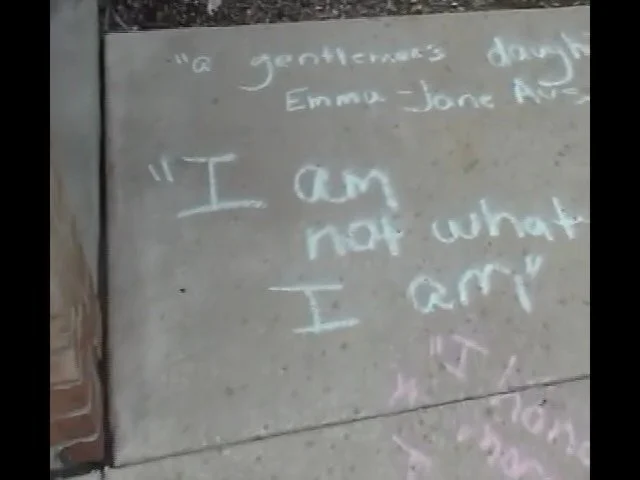 "a gentleman's daugh
Emma - Jane Aus
"I am
not what
I am"
"I